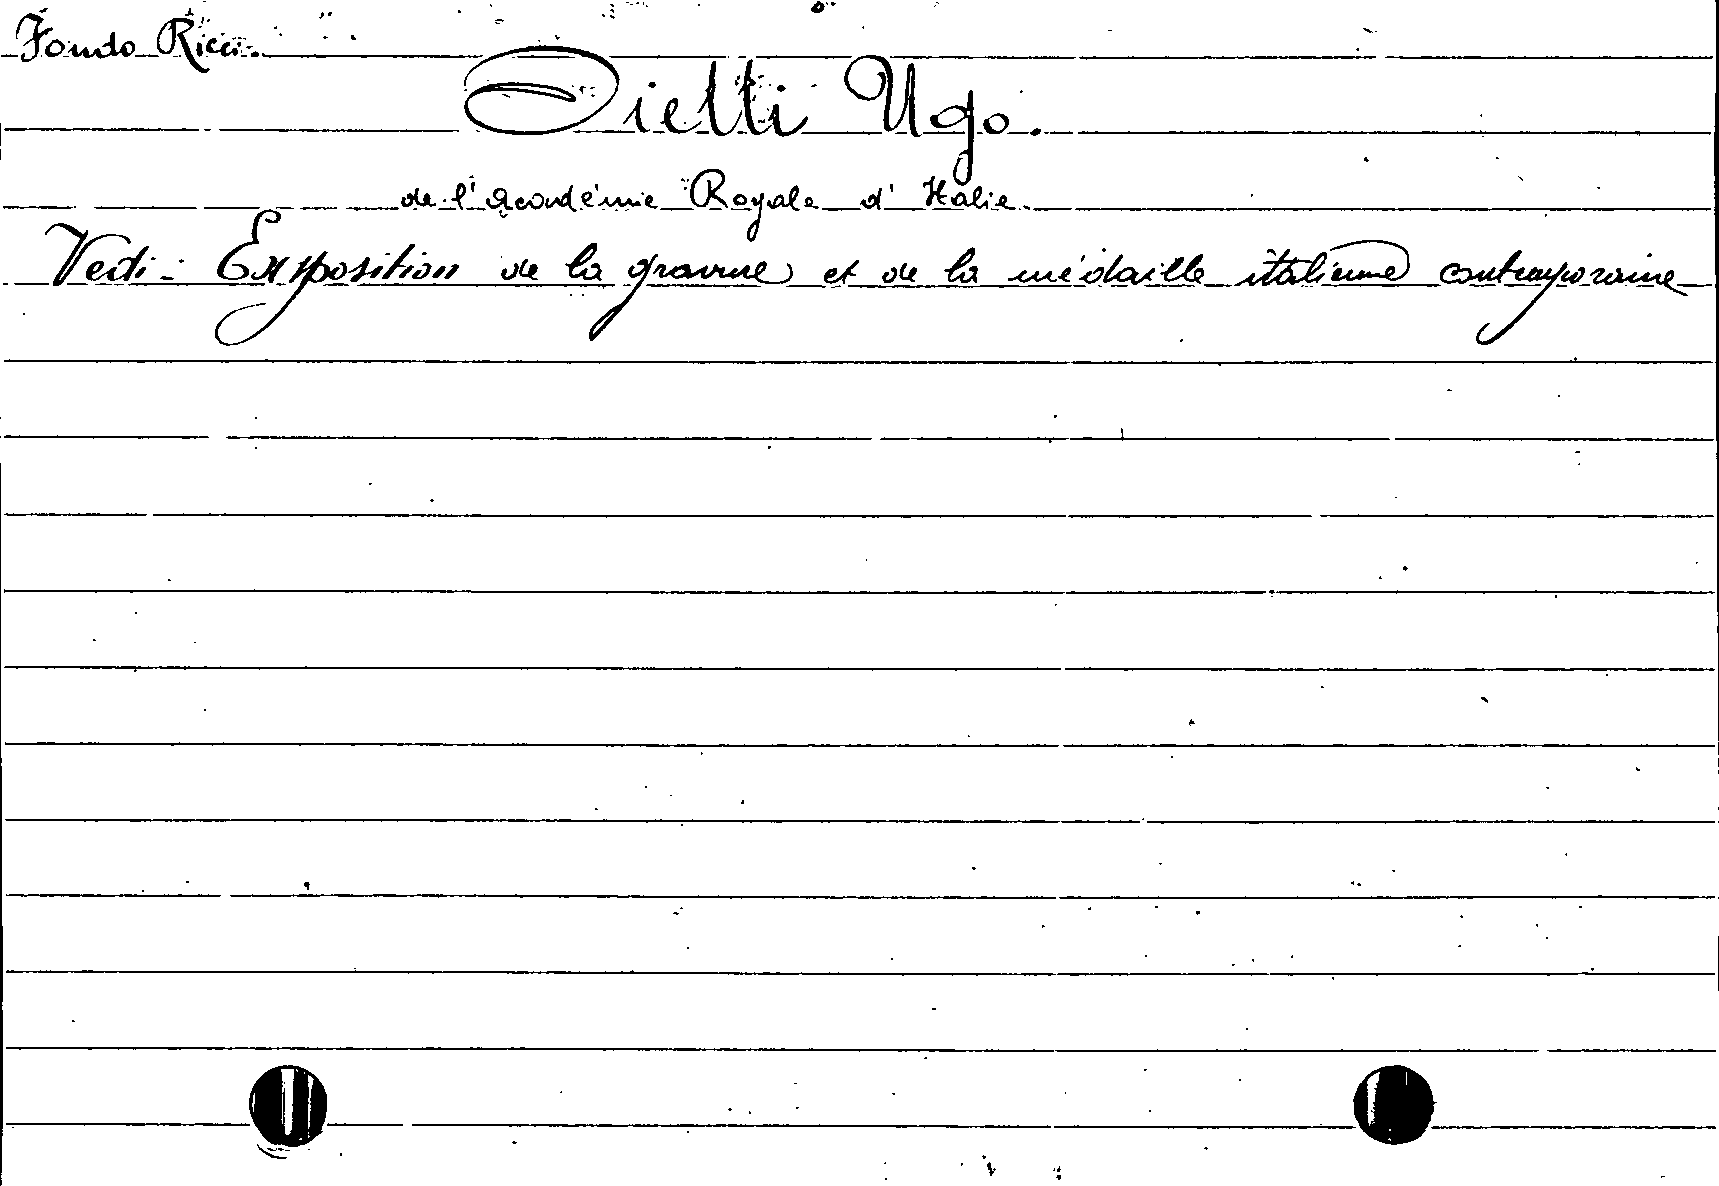 Fondo Ricci.
Oietti Ugo.
de l'Académie Royale d'Italie.
Vedi: Exposition de la gravure et de la médaille italienne contemporaine